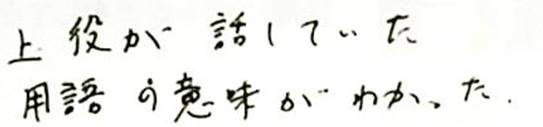 上役が話していた
用語の意味がわかった.